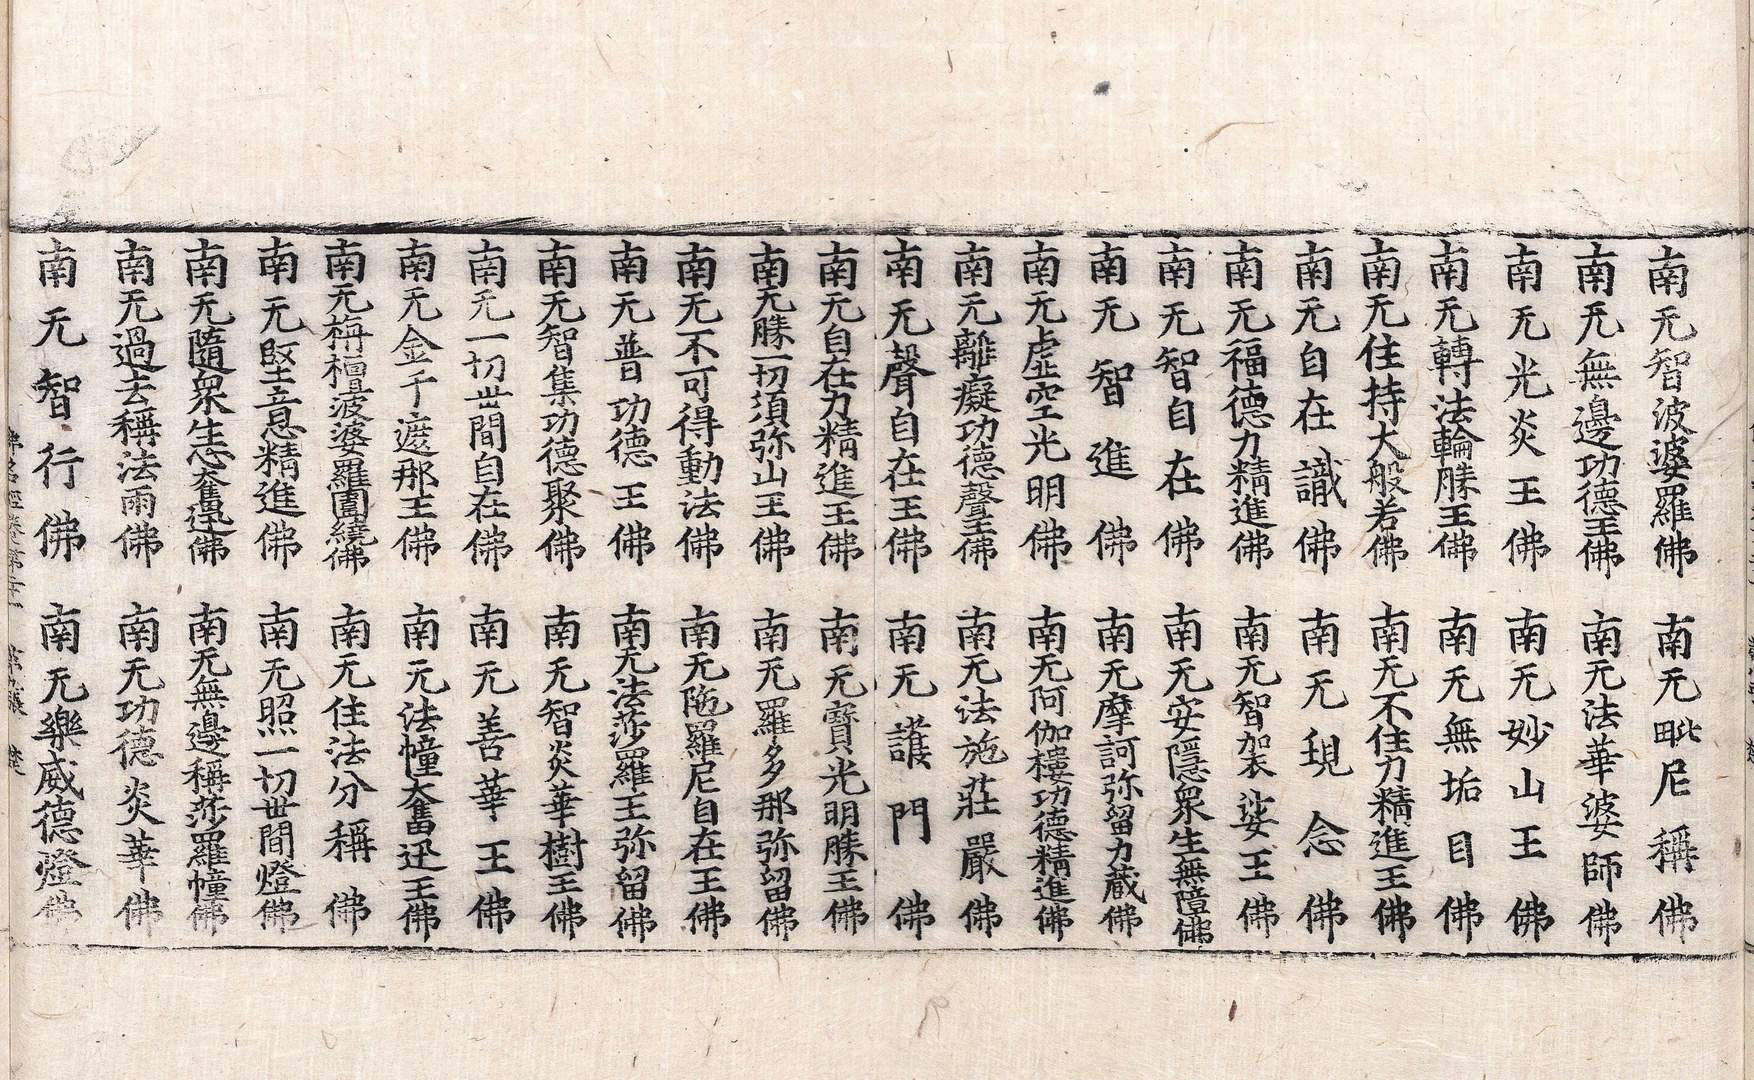 南无智波婆羅佛 南无毗尼稱佛
南无無邊功德王佛 南无法華婆師佛
南无光炎王佛 南无妙山王佛
南无轉法輪勝王佛 南无無垢目佛
南无住持大般若佛 南无不住力精進王佛
南无自在識佛 南无現念佛
南无福德力精進佛 南无智袈裟王佛
南无智自在佛 南无安隱衆生無障佛
南无智進佛 南无摩訶弥留力藏佛
南无虛空光明佛 南无阿伽樓功德精進佛
南无離癡功德聲王佛 南无法施莊嚴佛
南无聲自在王佛 南无護門佛
南无自在力精進王佛 南无寶光明勝王佛
南无勝一切須弥山王佛 南无羅多那弥留佛
南无不可得動法佛 南无陁羅尼自在王佛
南无普功德王佛 南无法莎羅王弥留佛
南无智集功德聚佛 南无智炎華樹王佛
南无一切世間自在佛 南无善華王佛
南无金千遮那王佛 南无法幢奮迅王佛
南无栴檀波婆羅圍繞佛 南无住法分稱佛
南无堅意精進佛 南无照一切世間燈佛
南无隨衆生心奮迅佛 南无無邊稱莎羅幢佛
南无過去稱法雨佛 南无功德炎華佛
南无智行佛 南无樂威德燈佛